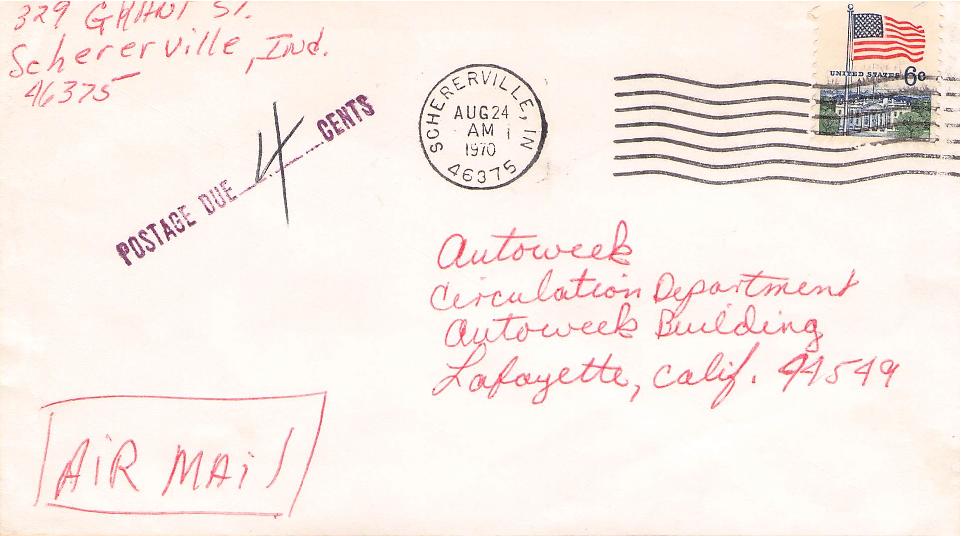 329 GRANT ST.
Schererville, Ind.
46375
POSTAGE DUE 4 CENTS
SCHERERVILLE, IN
AUG 24
AM
1970
46375
UNITED STATES 6c
Autoweek
Circulation Department
Autoweek Building
Lafayette, Calif. 94549
AiR MAil